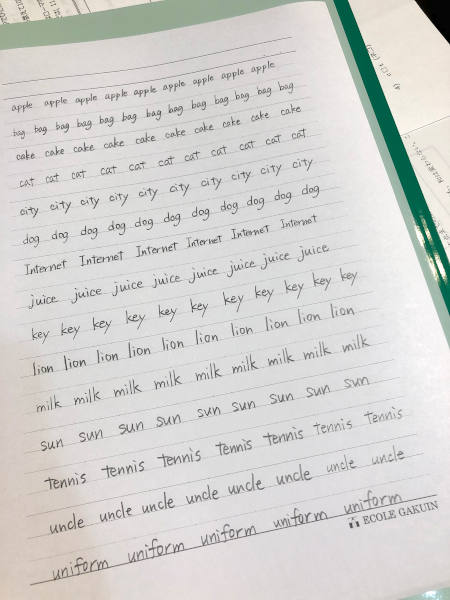 apple apple apple apple apple apple apple apple apple
bag bag bag bag bag bag bag bag bag bag bag bag bag
cake cake cake cake cake cake cake cake cake cake
cat cat cat cat cat cat cat cat cat cat cat
city city city city city city city city city city
dog dog dog dog dog dog dog dog dog dog dog
Internet Internet Internet Internet Internet Internet
juice juice juice juice juice juice juice juice
key key key key key key key key key key key
lion lion lion lion lion lion lion lion lion lion
milk milk milk milk milk milk milk milk milk
sun sun sun sun sun sun sun sun sun
tennis tennis tennis tennis tennis tennis tennis
uncle uncle uncle uncle uncle uncle uncle uncle
uniform uniform uniform uniform uniform
ECOLE GAKUIN